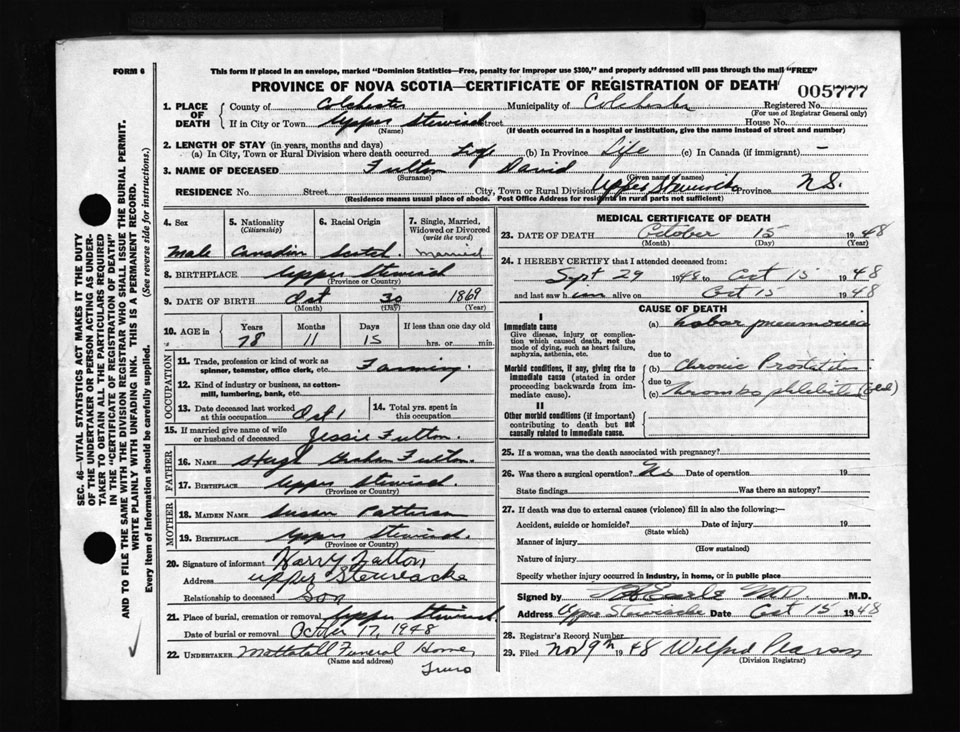 FORM 6
This form if placed in an envelope, marked "Dominion Statistics—Free, penalty for improper use $300," and properly addressed will pass through the mail "FREE"
PROVINCE OF NOVA SCOTIA—CERTIFICATE OF REGISTRATION OF DEATH
005777
1. PLACE OF DEATH
County of Colchester Municipality of Colchester Registered No.
(For use of Registrar General only)
If in City or Town Upper Stewiack Street House No.
(Name) (If death occurred in a hospital or institution, give the name instead of street and number)
2. LENGTH OF STAY (in years, months and days)
(a) In City, Town or Rural Division where death occurred Life (b) In Province Life (c) In Canada (if immigrant) —
3. NAME OF DECEASED Fulton David
(Surname) (Given name or names)
RESIDENCE No. Street City, Town or Rural Division Upper Stewiacke Province N.S.
(Residence means usual place of abode. Post Office Address for residents in rural parts not sufficient)
4. Sex
Male
5. Nationality
(Citizenship)
Canadian
6. Racial Origin
Scotch
7. Single, Married, Widowed or Divorced
(write the word)
Married
8. BIRTHPLACE Upper Stewiack
(Province or Country)
9. DATE OF BIRTH Oct 30 1869
(Month) (Day) (Year)
10. AGE in Years Months Days If less than one day old
78 11 15 hrs. or min.
OCCUPATION
11. Trade, profession or kind of work as spinner, teamster, office clerk, etc. Farming
12. Kind of industry or business, as cotton-mill, lumbering, bank, etc.
13. Date deceased last worked at this occupation Oct 1
14. Total yrs. spent in this occupation
15. If married give name of wife or husband of deceased Jessie Fulton.
FATHER
16. NAME Hugh Graham Fulton.
17. BIRTHPLACE Upper Stewiack.
(Province or Country)
MOTHER
18. MAIDEN NAME Susan Patterson
19. BIRTHPLACE Upper Stewiack.
(Province or Country)
20. Signature of informant Harry Fulton
Address Upper Stewiacke
Relationship to deceased Son
21. Place of burial, cremation or removal Upper Stewiack.
Date of burial or removal October 17, 1948
22. UNDERTAKER Mattatall Funeral Home,
(Name and address)
Truro
MEDICAL CERTIFICATE OF DEATH
23. DATE OF DEATH October 15 1948
(Month) (Day) (Year)
24. I HEREBY CERTIFY that I attended deceased from:
Sept 29 1948 to Oct 15 1948
and last saw him alive on Oct 15 1948
CAUSE OF DEATH
I
Immediate cause
Give disease, injury or complication which caused death, not the mode of dying, such as heart failure, asphyxia, asthenia, etc.
(a) Lobar pneumonia
due to
Morbid conditions, if any, giving rise to immediate cause (stated in order proceeding backwards from immediate cause).
(b) Chronic Prostatitis
due to
(c) Thrombo phlebitis (old)
II
Other morbid conditions (if important) contributing to death but not causally related to immediate cause.
25. If a woman, was the death associated with pregnancy?
26. Was there a surgical operation? No Date of operation 19
State findings Was there an autopsy?
27. If death was due to external causes (violence) fill in also the following:—
Accident, suicide or homicide? Date of injury 19
(State which)
Manner of injury
(How sustained)
Nature of injury
Specify whether injury occurred in industry, in home, or in public place
Signed by Earle MD M.D.
Address Upper Stewiacke Date Oct 15 1948
28. Registrar's Record Number
29. Filed Nov 9th 1948 Wilfred Pearson
(Division Registrar)
SEC. 46—VITAL STATISTICS ACT MAKES IT THE DUTY
OF THE UNDERTAKER OR PERSON ACTING AS UNDER-
TAKER TO OBTAIN ALL THE PARTICULARS REQUIRED
IN THE "CERTIFICATE OF REGISTRATION OF DEATH"
AND TO FILE THE SAME WITH THE DIVISION REGISTRAR WHO SHALL ISSUE THE BURIAL PERMIT.
WRITE PLAINLY WITH UNFADING INK. THIS IS A PERMANENT RECORD.
Every item of information should be carefully supplied. (See reverse side for instructions.)